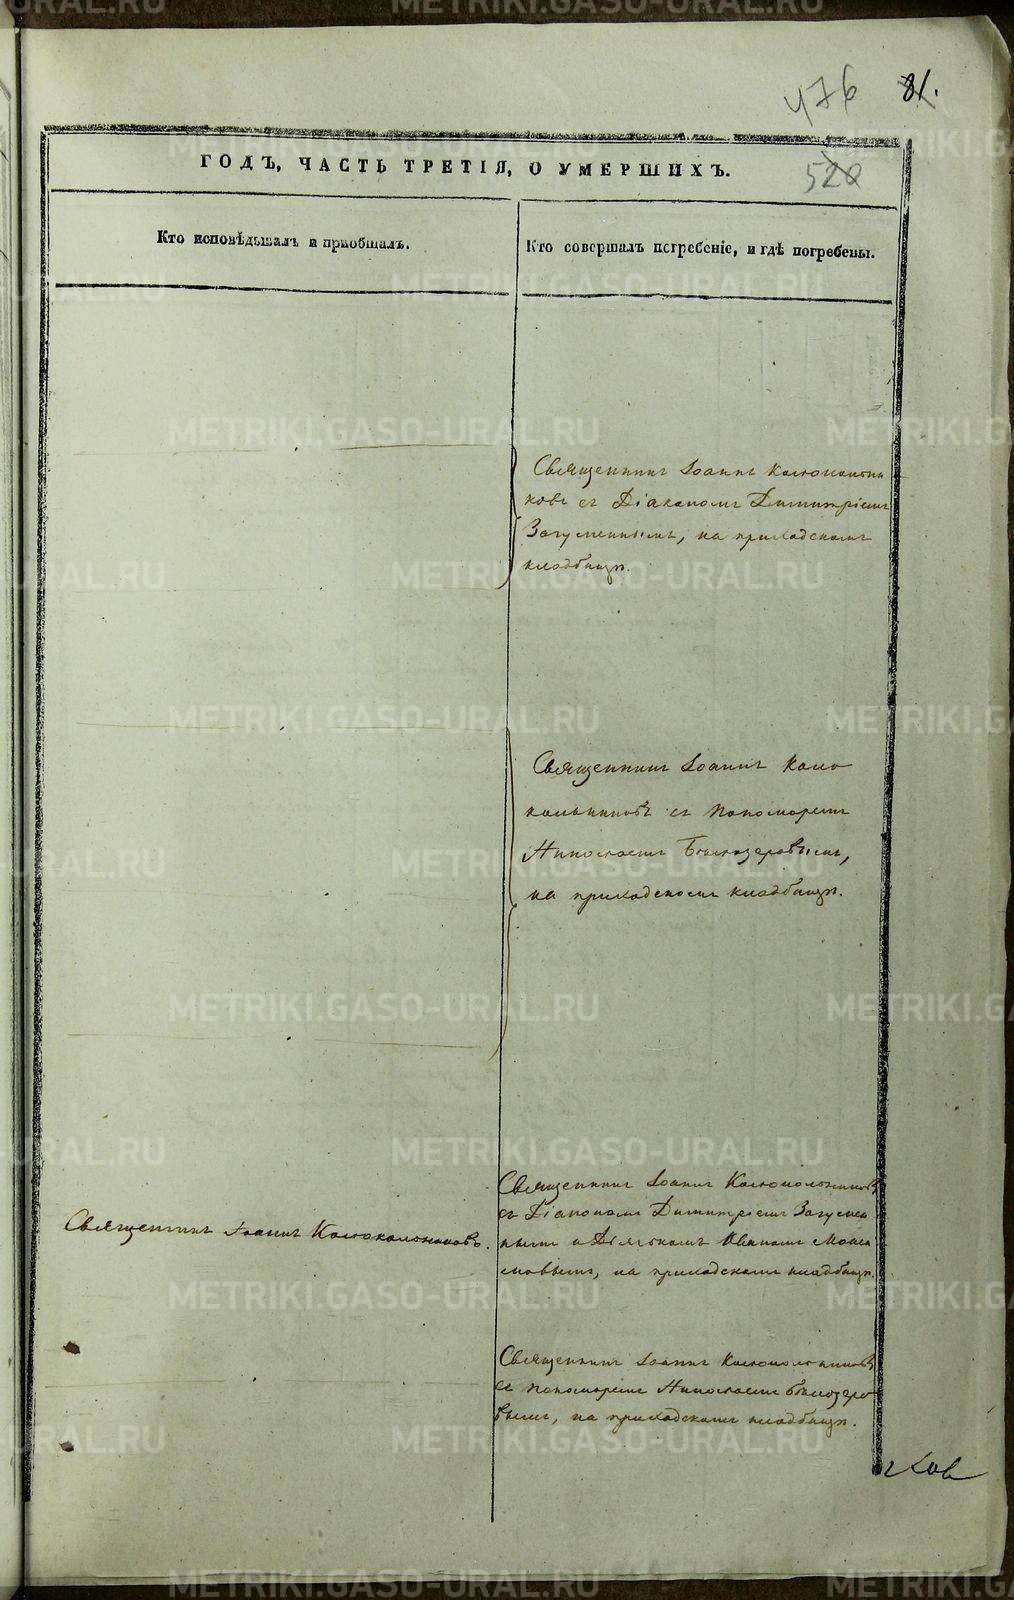 476 81.
520
ГОДЪ, ЧАСТЬ ТРЕТІЯ, О УМЕРШИХЪ.
Кто исповѣдывалъ и пріобщалъ.
Кто совершалъ погребеніе, и гдѣ погребены.
Священникъ Іоаннъ Колокольни
ковъ съ Діакономъ Димитріемъ
Загуменнымъ, на приходскомъ
кладбищѣ.
Священникъ Іоаннъ Коло
кольниковъ съ пономаремъ
Николаемъ Бѣлозеровымъ,
на приходскомъ кладбищѣ.
Священникъ Іоаннъ Колокольниковъ.
Священникъ Іоаннъ Колокольниковъ
съ Діакономъ Димитріемъ Загумен
нымъ и Дьячкомъ Иваномъ
на приходскомъ кладбищѣ.
Священникъ Іоаннъ Колокольниковъ
съ пономаремъ Николаемъ Бѣлозеро
вымъ, на приходскомъ кладбищѣ.
METRIKI.GASO-URAL.RU